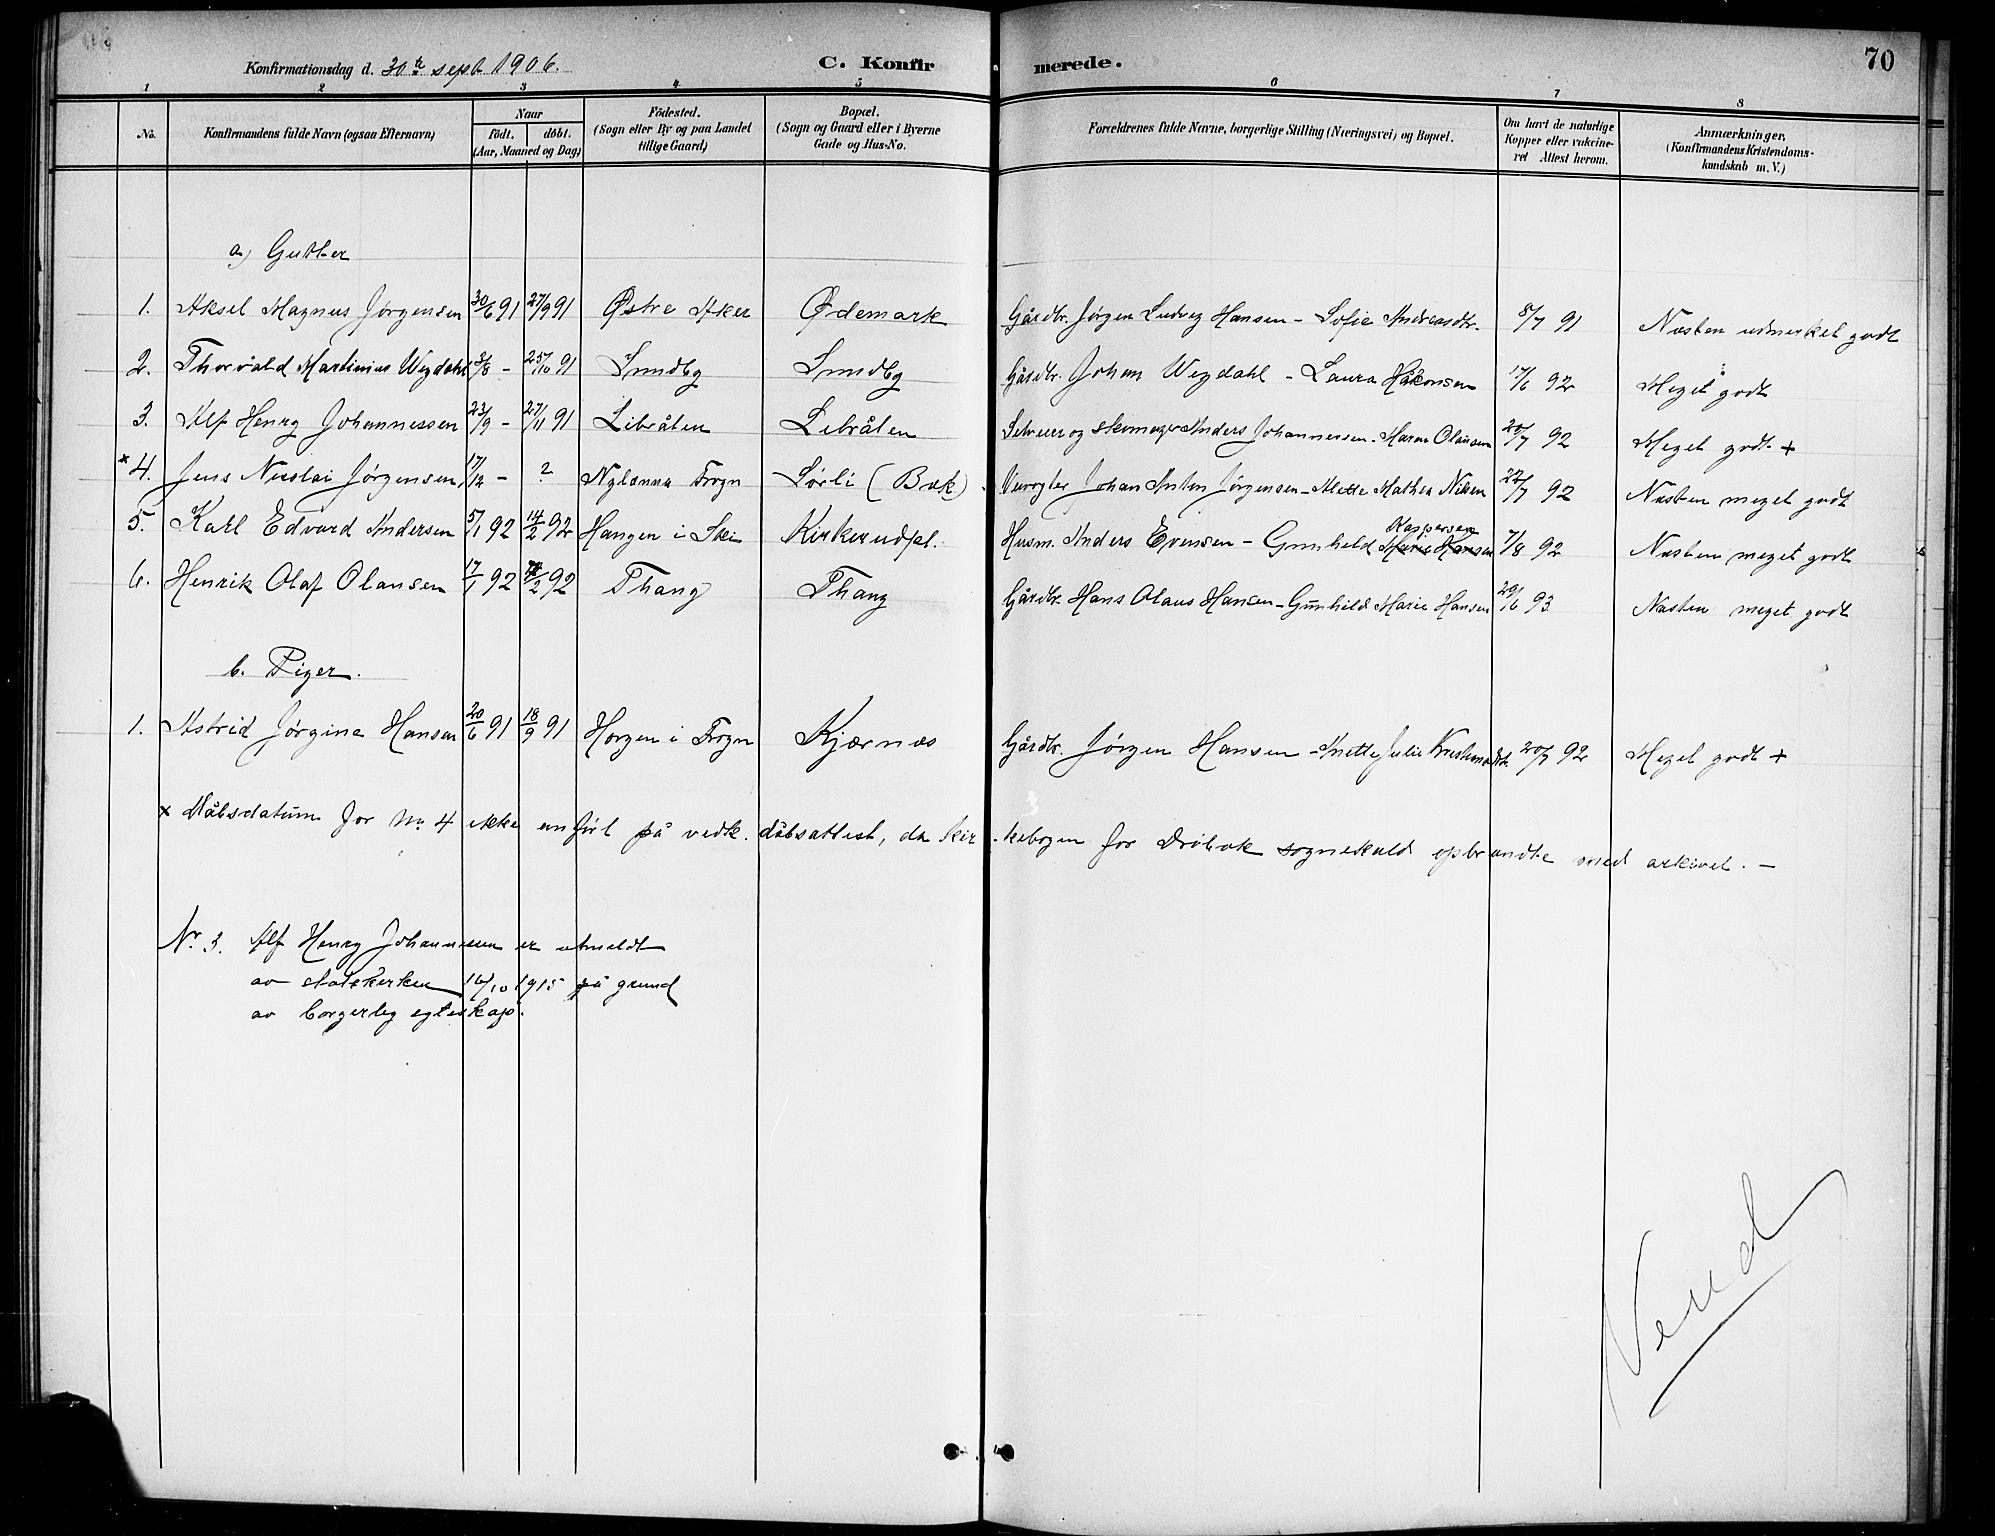 70
Konfirmationsdag d. 30te sept 1906. C. Konfirmerede.
1 2 3 4 5 6 7 8
No. Konfirmandens fulde Navn (ogsaa Efternavn) Naar født. døbt. (Aar, Maaned og Dag) Fødested. (Sogn eller By og paa Landet tillige Gaard) Bopæl. (Sogn og Gaard eller i Byerne Gade og Hus-No. Forældrenes fulde Navne, borgerlige Stilling (Næringsvei) og Bopæl. Om havt de naturlige Kopper eller vakcineret Attest herom. Anmærkninger. (Konfirmandens Kristendomskundskab m. V.)
a) Gutter
1. Aksel Magnus Jørgensen 30/6 91 27/9 91 Østre Aker Ødemark Gårdbr. Jørgen Ludvig Hansen - Sofie Andreasdtr. 8/7 91 Næsten udmerket godt
2. Thorvald Martinius Wegdahl 3/8 - 25/10 91 Sundby Sundby Gårdbr. Johan Wegdahl - Laura Håkonsen 17/6 92 Meget godt
3. Alf Henry Johannessen 23/9 - 27/11 91 Libråten Libråten Selveier og skomager Anders Johannessen - Maren Olausen 20/7 92 Meget godt +
x 4. Jens Nicolai Jørgensen 17/12 - ? Nylanna Frogn Sørli (Bæk) Veivogter Johan Anton Jørgensen - Alette Mathea Nilsen 22/7 92 Næsten meget godt
5. Karl Edvard Andersen 5/1 92 14/2 92 Haugen i Ski Kirkerudpl. Husm. Anders Evensen - Gunhild Marie Hansen Kaspersen 7/8 92 Næsten meget godt
6. Henrik Olaf Olausen 17/1 92 /2 92 Thaug Thaug Gårdbr. Hans Olaus Hansen - Gunhild Marie Hansen 29/6 93 Næsten meget godt
b. Piger.
1. Astrid Jørgine Hansen 20/6 91 18/9 91 Horgen i Frogn Kjærnæs Gårdbr. Jørgen Hansen - Anette Julie Kristiansdtr. 20/7 92 Meget godt +
x Dåbsdatum for No 4 ikke anført på vedk. dåbsattest, da kirkebogen for Drøbak sognekald opbrændte med arkivet. -
Nr. 3. Alf Henry Johannessen er utmeldt
av statskirken 16/10 1915 på grund
av borgerlig egteskap.
Vend